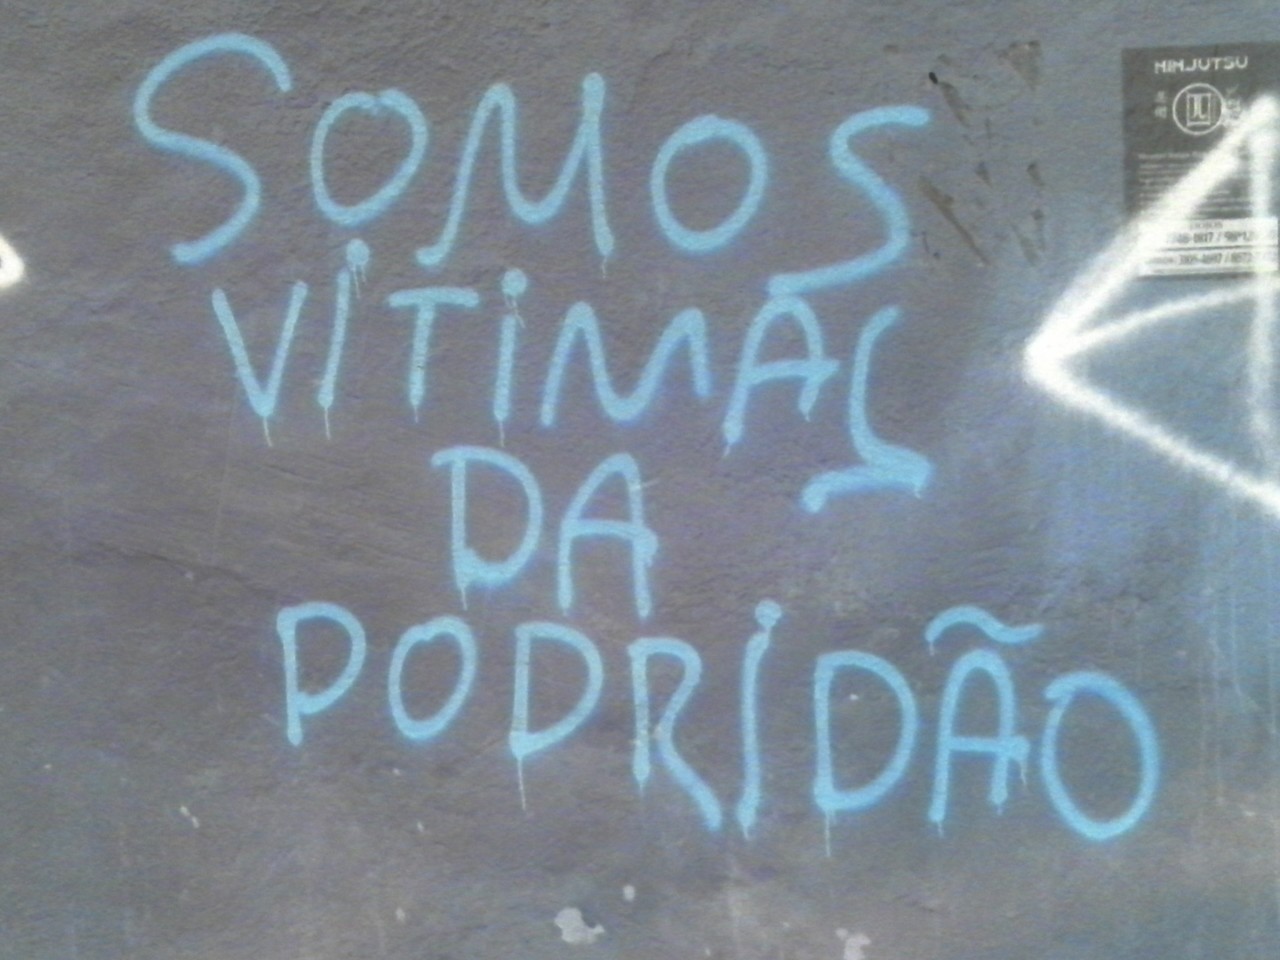 SOMOS
VITIMAS
DA
PODRIDÃO
NINJUTSU